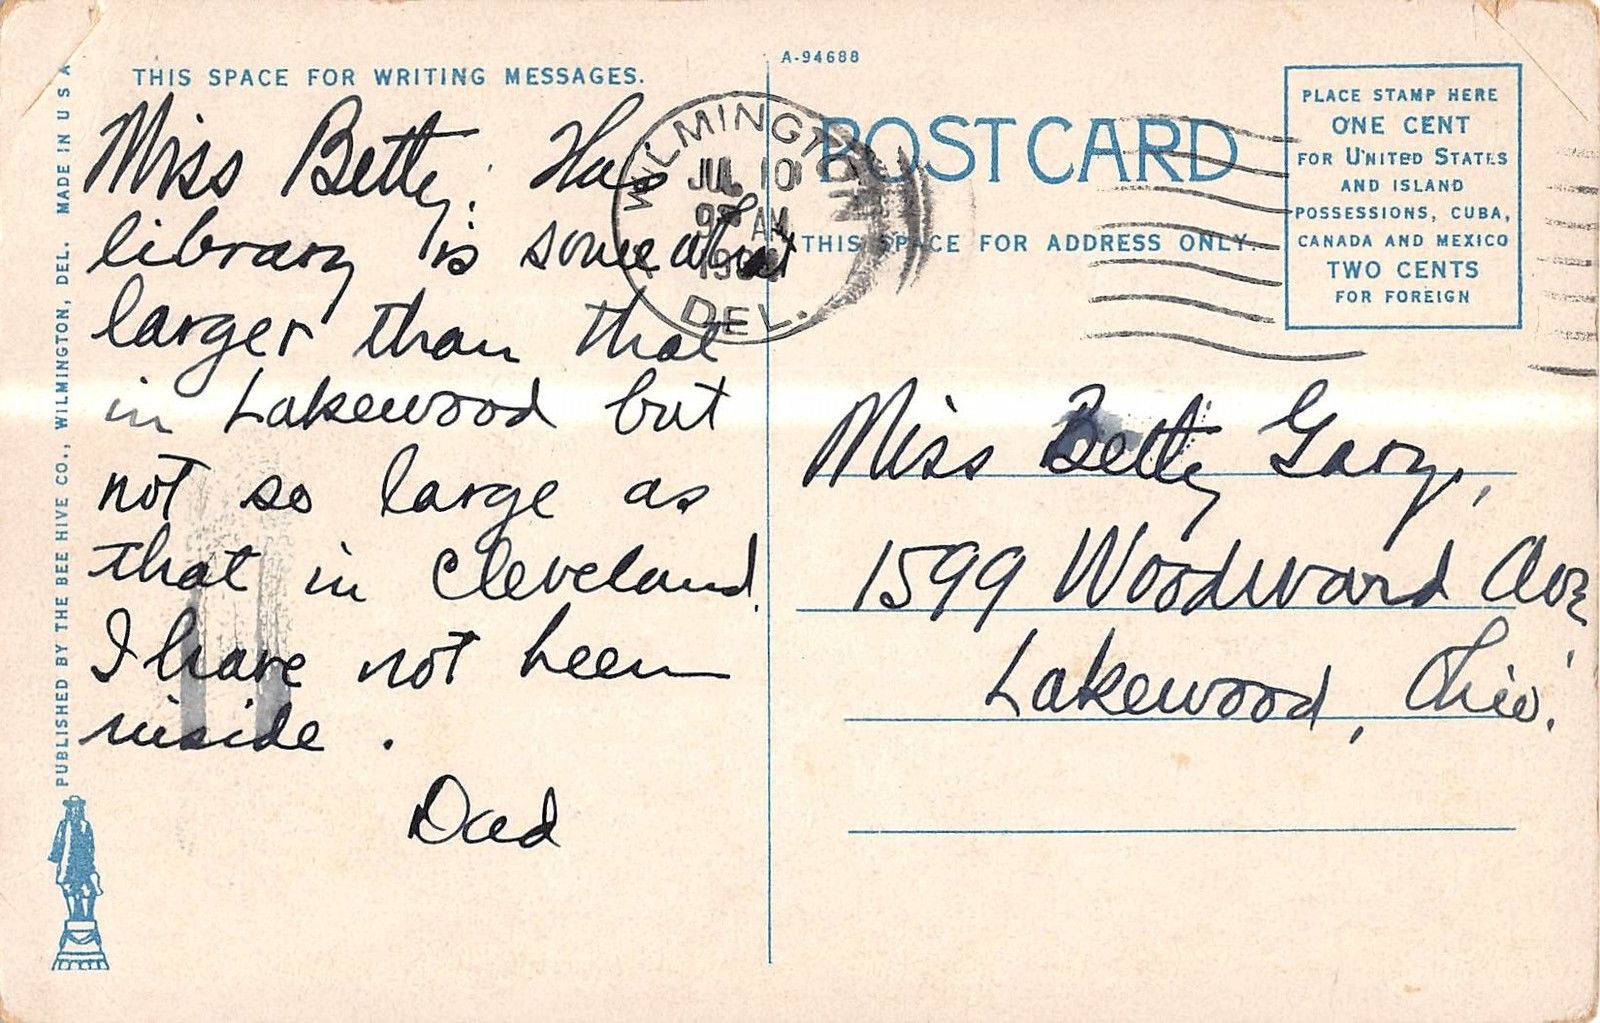 THIS SPACE FOR WRITING MESSAGES.
Miss Betty: This
library is somewhat
larger than that
in Lakewood but
not so large as
that in Cleveland.
I have not been
inside.
Dad
PUBLISHED BY THE BEE HIVE CO., WILMINGTON, DEL. MADE IN U S A
A-94688
POST CARD
THIS SPACE FOR ADDRESS ONLY.
WILMINGTON
JUL 10
AM
DEL.
PLACE STAMP HERE
ONE CENT
FOR UNITED STATES
AND ISLAND
POSSESSIONS, CUBA,
CANADA AND MEXICO
TWO CENTS
FOR FOREIGN
Miss Betty Gary,
1599 Woodward Ave
Lakewood, Ohio.